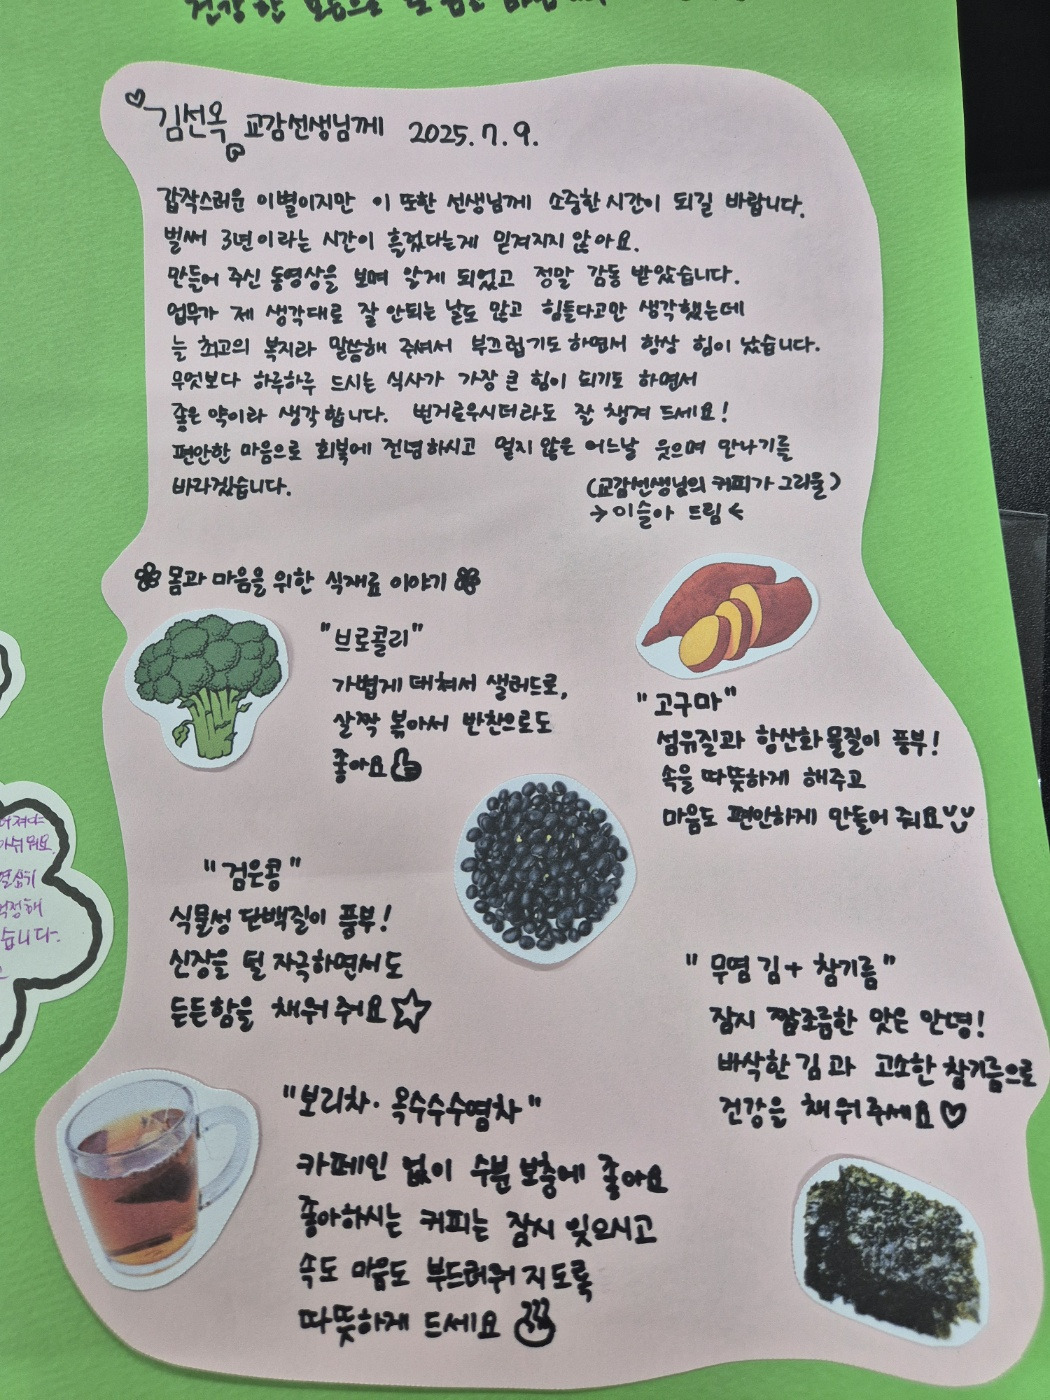 김선옥 교감선생님께 2025.7.9.
갑작스러운 이별이지만 이 또한 선생님께 소중한 시간이 되길 바랍니다.
벌써 3년이라는 시간이 흘렀다는게 믿겨지지 않아요.
만들어 주신 동영상을 보며 알게 되었고 정말 감동 받았습니다.
업무가 제 생각대로 잘 안되는 날도 많고 힘들다고만 생각했는데
늘 최고의 복지라 말씀해 주셔서 부끄럽기도 하면서 항상 힘이 났습니다.
무엇보다 하루하루 드시는 식사가 가장 큰 힘이 되기도 하면서
좋은 약이라 생각합니다. 번거로우시더라도 잘 챙겨 드세요!
편안한 마음으로 회복에 전념하시고 멀지 않은 어느날 웃으며 만나기를
바라겠습니다.
(교감선생님의 커피가 그리울)
→이슬아 드림←
몸과 마음을 위한 식재료 이야기
"브로콜리"
가볍게 데쳐서 샐러드로,
살짝 볶아서 반찬으로도
좋아요
"고구마"
섬유질과 항산화 물질이 풍부!
속을 따뜻하게 해주고
마음도 편안하게 만들어 줘요
"검은콩"
식물성 단백질이 풍부!
신장을 덜 자극하면서도
든든함을 채워줘요
"무염 김+ 참기름"
잠시 짭조름한 맛은 안녕!
바삭한 김과 고소한 참기름으로
건강을 채워주세요
"보리차·옥수수수염차"
카페인 없이 수분 보충에 좋아요
좋아하시는 커피는 잠시 잊으시고
속도 마음도 부드러워지도록
따뜻하게 드세요